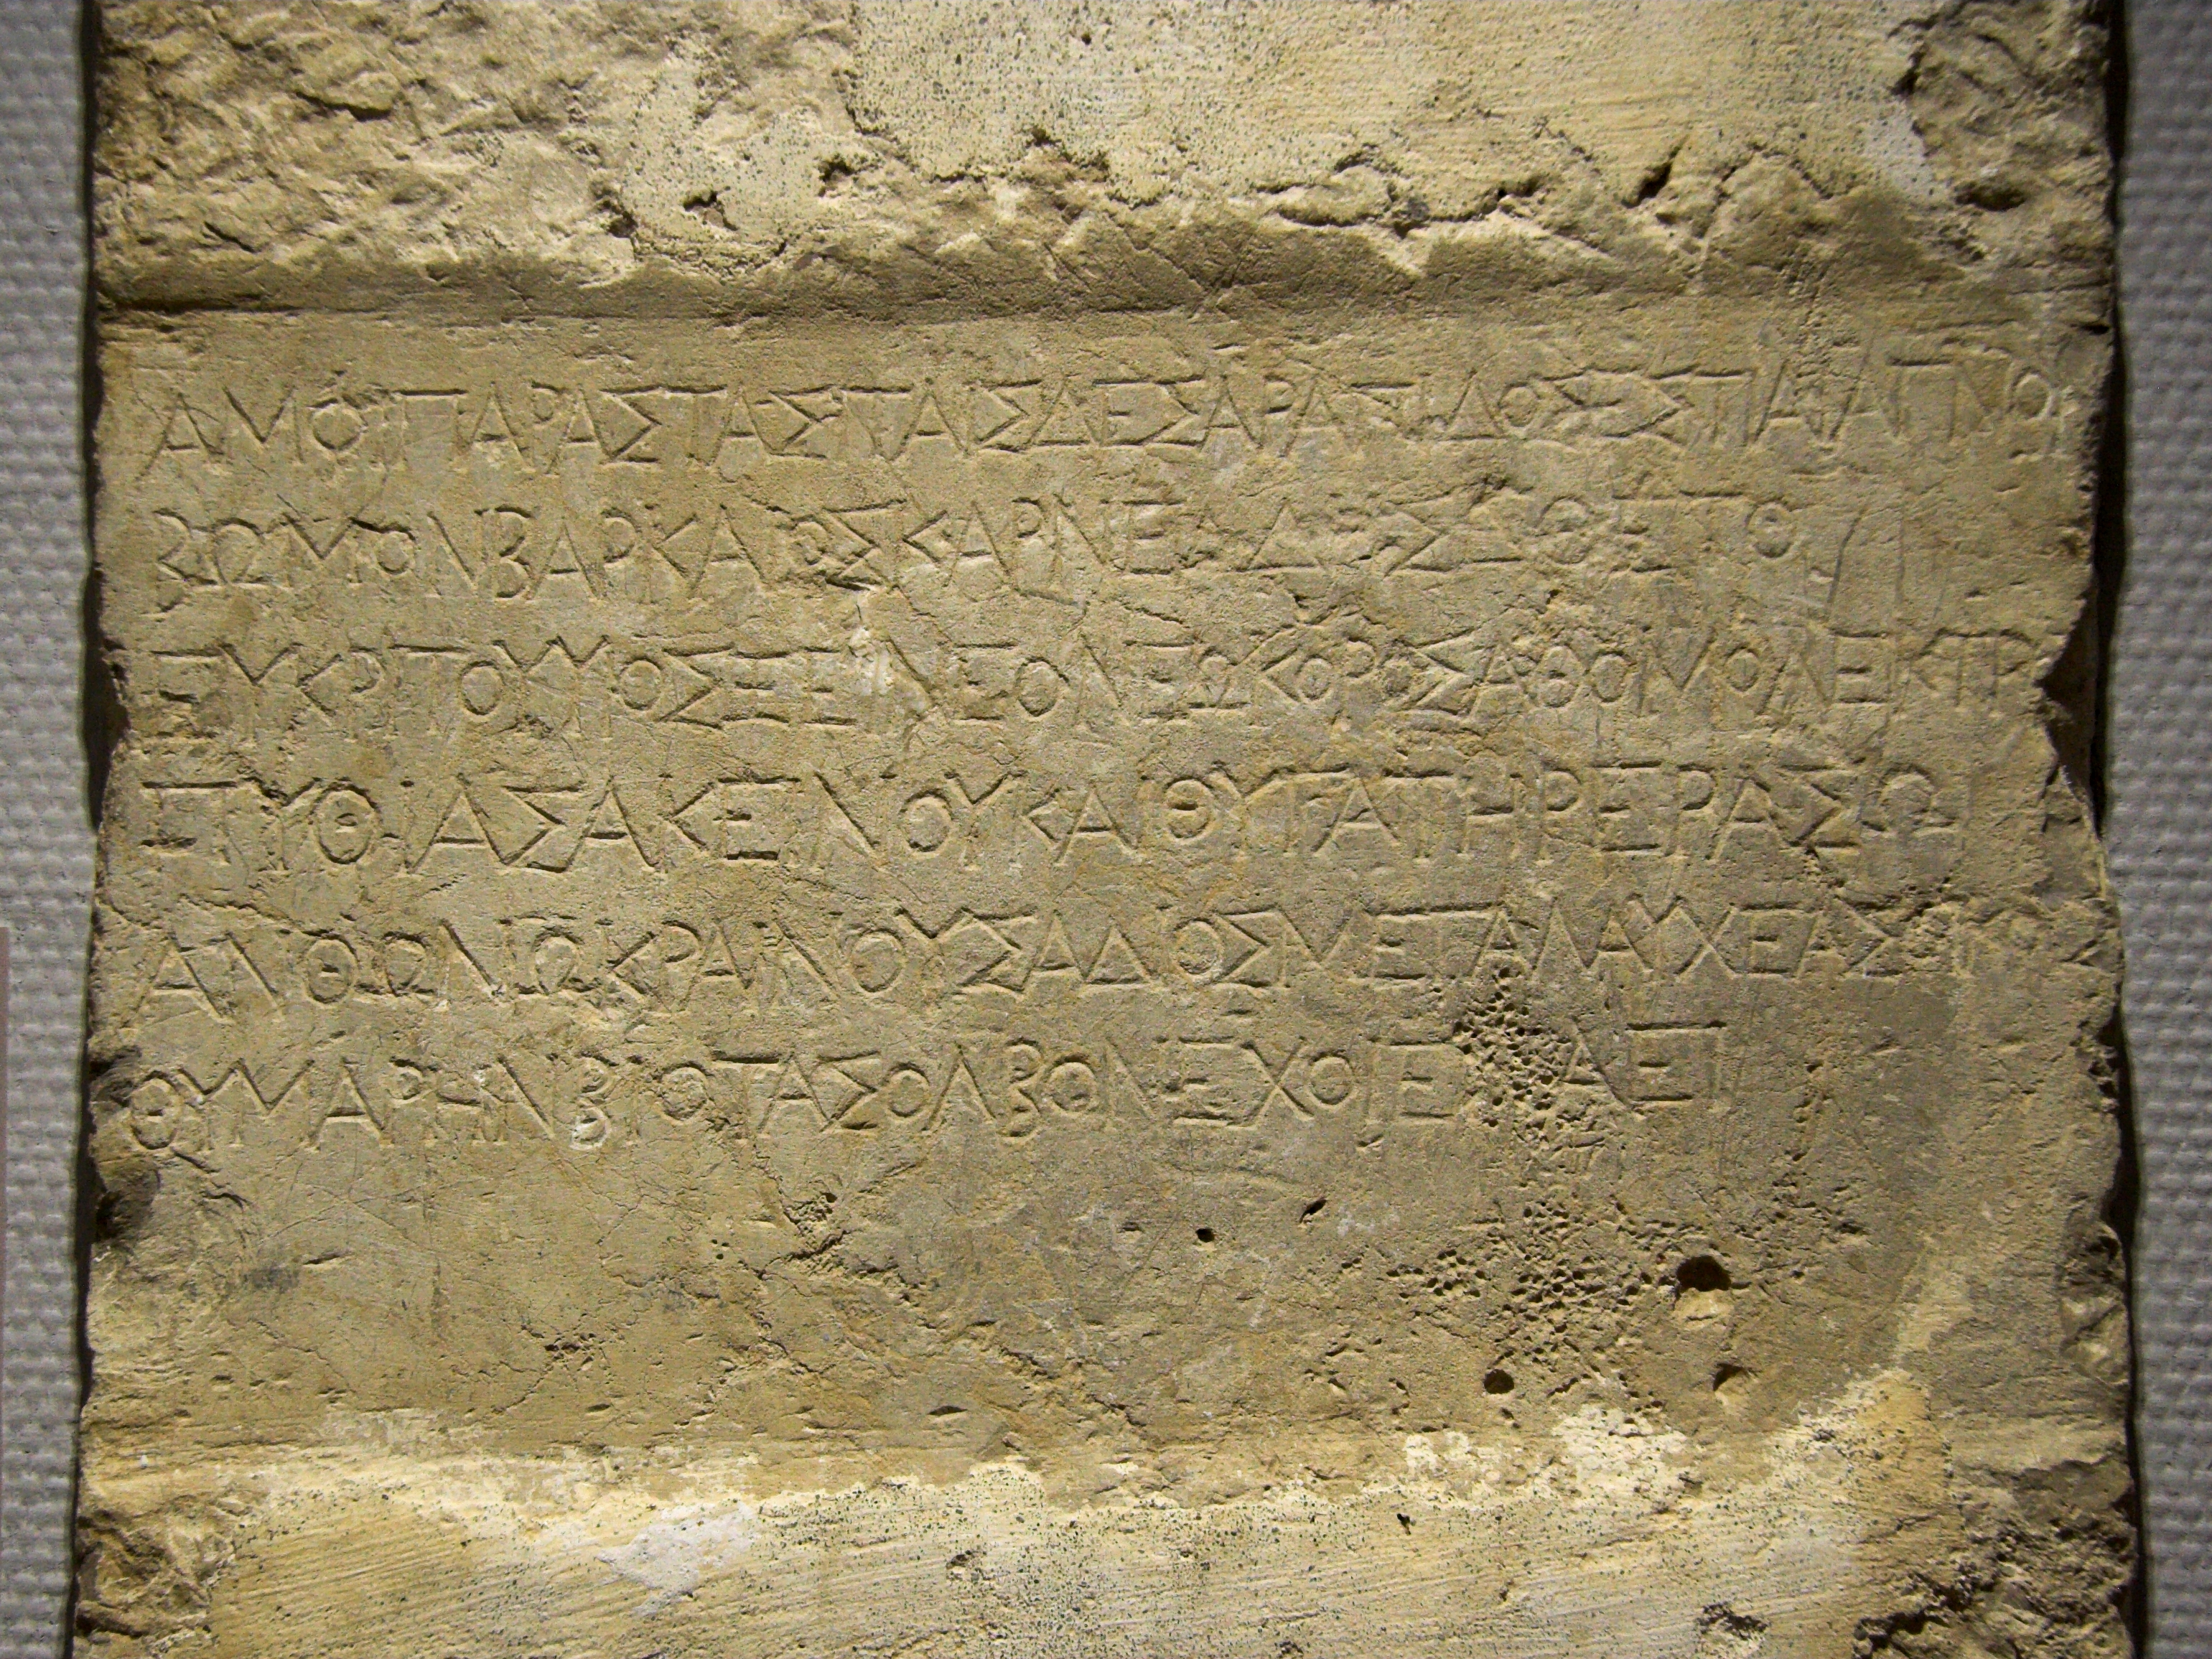 ΑΜΟΙΠΑΡΑΣΤΑΣΤΑΣΔΕΣΑΡΑΠΙΔΟΣΕΣΤΙΑΙΑΓΝΟΝ
ΒΩΜΟΝΒΑΡΚΑΙΟΣΚΑΡΝΕΑΔΗΣΕΘΕΤΟ
ΕΥΚΡΙΤΟΥΥΙΟΣΞΕΙΝΕΟΝΕΩΚΟΡΟΣΑΘΟΜΟΛΕΚΤΡ
ΠΥΘΙΑΣΑΚΕΙΝΟΥΚΑΙΘΥΓΑΤΗΡΕΡΑΣΩ
ΑΝΘΩΝΩΚΡΑΙΝΟΥΣΑΔΟΣΜΕΓΑΛΑΥΧΕΑΣ
ΘΥΜΑΡΗΝΒΙΟΤΑΣΟΛΒΟΝΕΧΟΙΕΝΑΕΙ